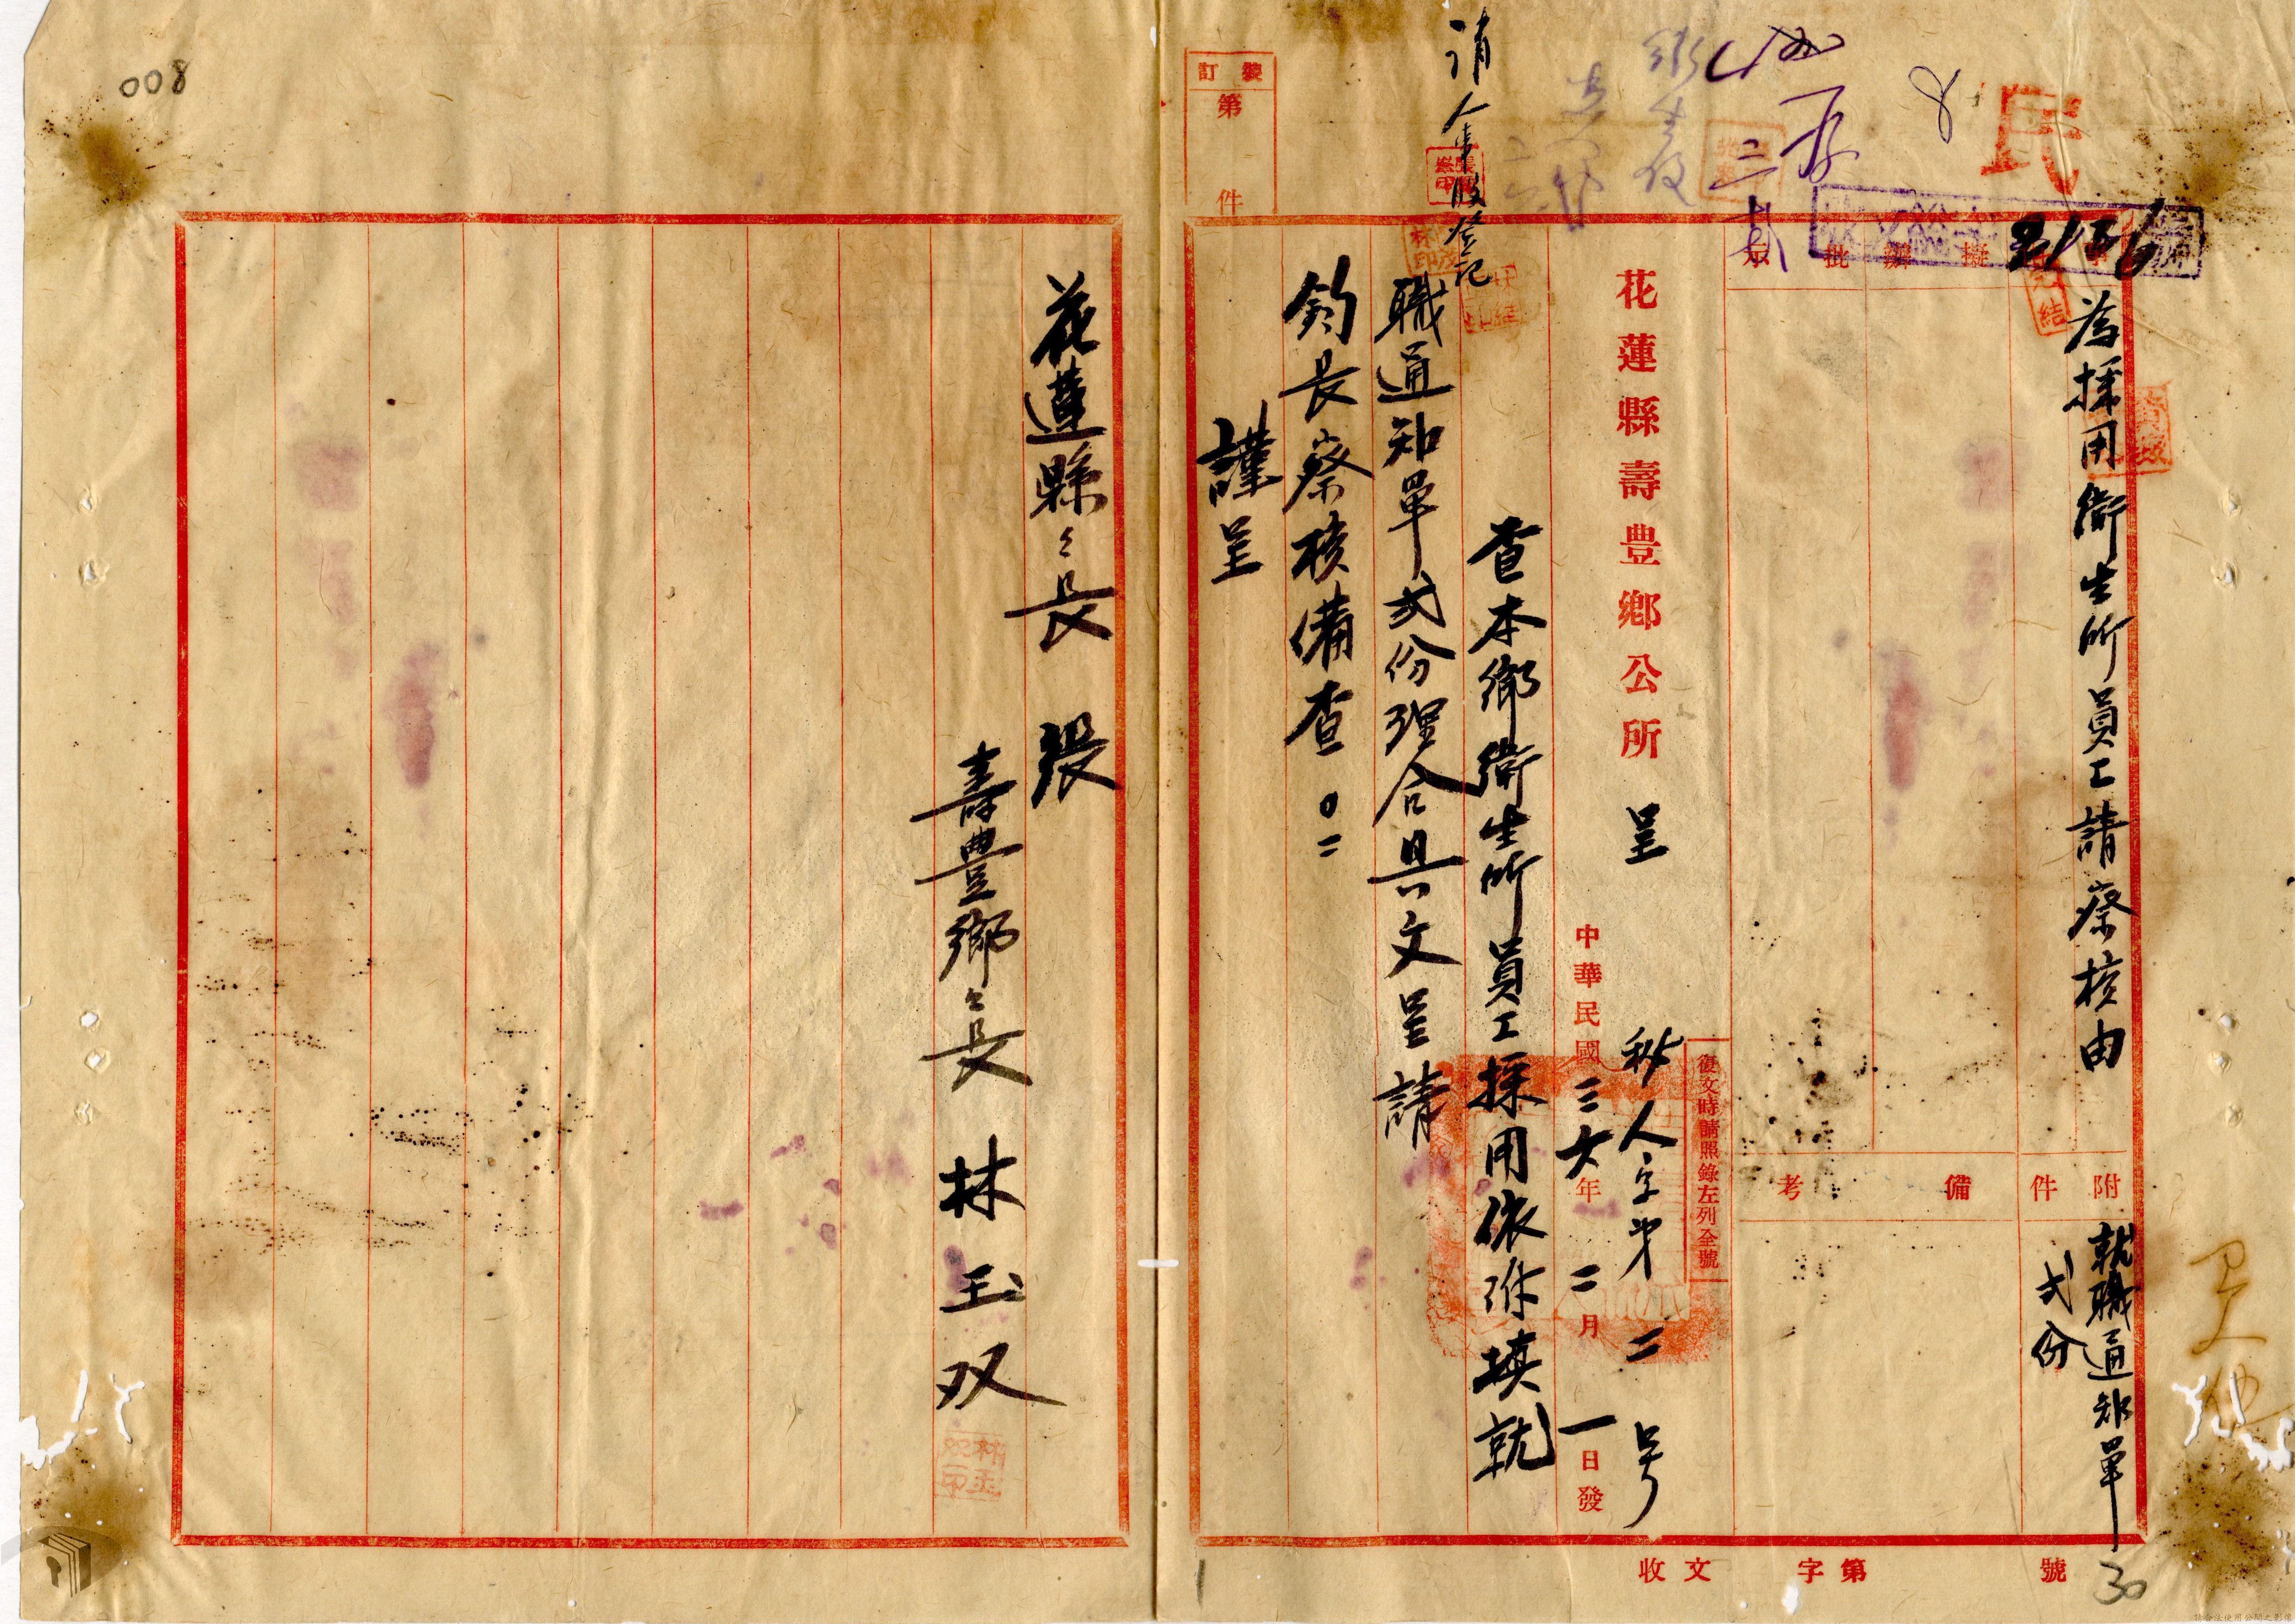 為採用衛生所員工請察核由
附件
就職通知單
弍份
備考
擬辦
批示
民
3156
8
復文時請照錄左列全號
花蓮縣壽豊鄉公所 呈
秘人字第二号
中華民國三六年二月一日發
查本鄉衛生所員工採用依份填就
職通知單弍份理合具文呈請
鈞長察核備查。
謹呈
請人事股登記
裝訂
第 件
花蓮縣々長 張
壽豊鄉々長 林玉双
008
收文 字第 號
30